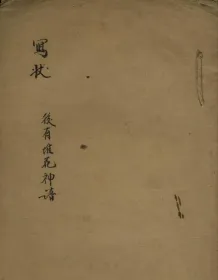 寫狀
後有催花神譜